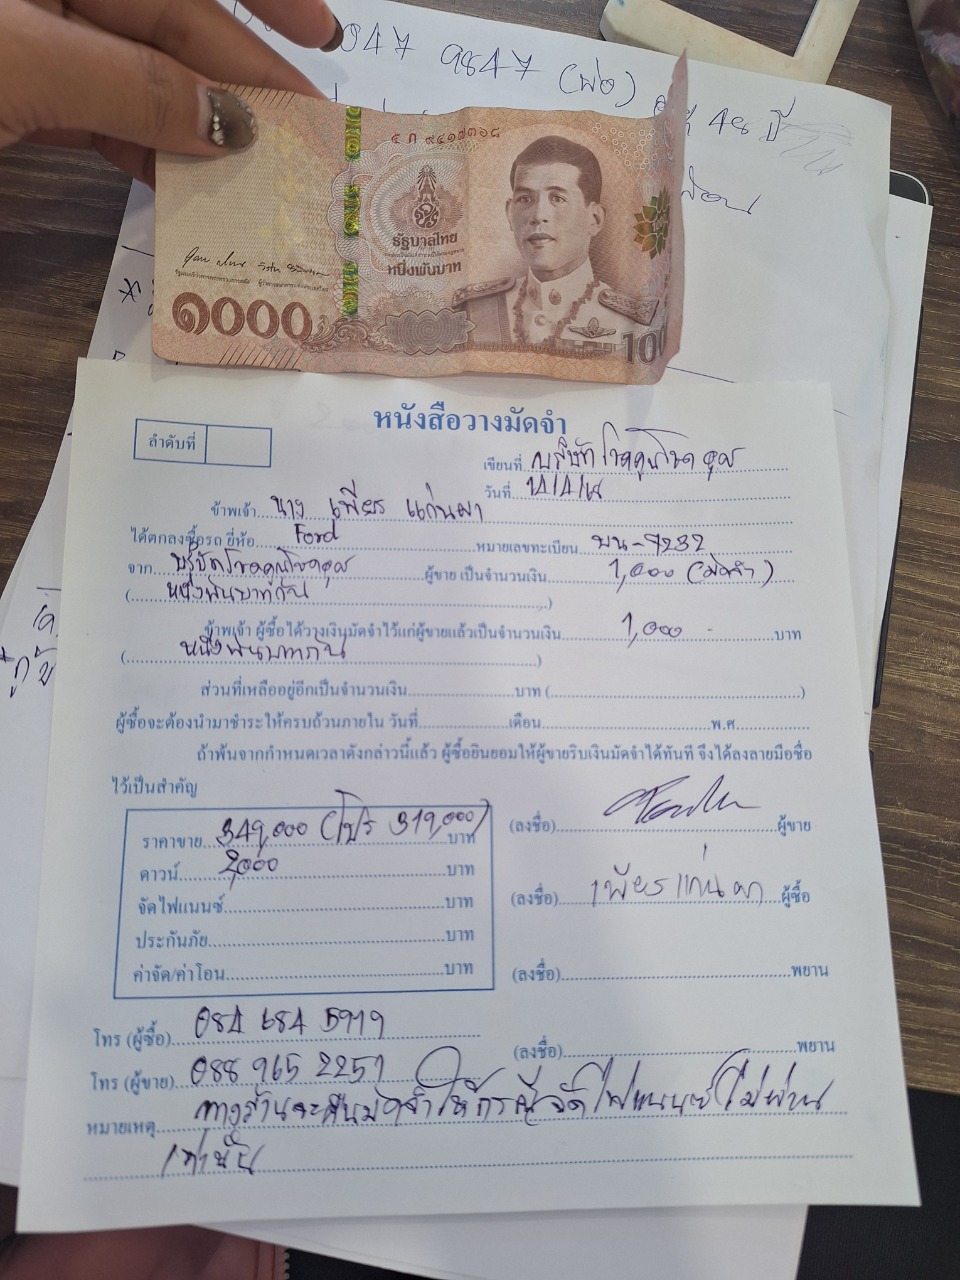 047 9847 (พ่อ)
48 ปี
๕ ภ ๙๔๑๗๓๖๘
รัฐบาลไทย
หนึ่งพันบาท
๑๐๐๐
100
หนังสือวางมัดจำ
ลำดับที่
เขียนที่ บริษัทโชคคูณโชค
วันที่
ข้าพเจ้า นาง เพียร แก่นผา
ได้ตกลงซื้อรถ ยี่ห้อ Ford หมายเลขทะเบียน บน-7232
จาก บริษัทโชคคูณโชค ผู้ขาย เป็นจำนวนเงิน 1,000 (มัดจำ)
(หนึ่งพันบาทถ้วน)
ข้าพเจ้า ผู้ซื้อได้วางเงินมัดจำไว้แก่ผู้ขายแล้วเป็นจำนวนเงิน 1,000 บาท
(หนึ่งพันบาทถ้วน)
ส่วนที่เหลืออยู่อีกเป็นจำนวนเงิน บาท ( )
ผู้ซื้อจะต้องนำมาชำระให้ครบถ้วนภายใน วันที่ เดือน พ.ศ.
ถ้าพ้นจากกำหนดเวลาดังกล่าวนี้แล้ว ผู้ซื้อยินยอมให้ผู้ขายริบเงินมัดจำได้ทันที จึงได้ลงลายมือชื่อ
ไว้เป็นสำคัญ
ราคาขาย 349,000 (โปร 319,000) บาท
(ลงชื่อ) ผู้ขาย
ดาวน์ 2,000 บาท
(ลงชื่อ) เพียร แก่นผา ผู้ซื้อ
จัดไฟแนนซ์ บาท
ประกันภัย บาท
ค่าจัด/ค่าโอน บาท
(ลงชื่อ) พยาน
โทร (ผู้ซื้อ) 084 684 5919
(ลงชื่อ) พยาน
โทร (ผู้ขาย) 088 965 2251
หมายเหตุ ทางร้านจะคืนมัดจำให้กรณีจัดไฟแนนซ์ไม่ผ่าน
เท่านั้น